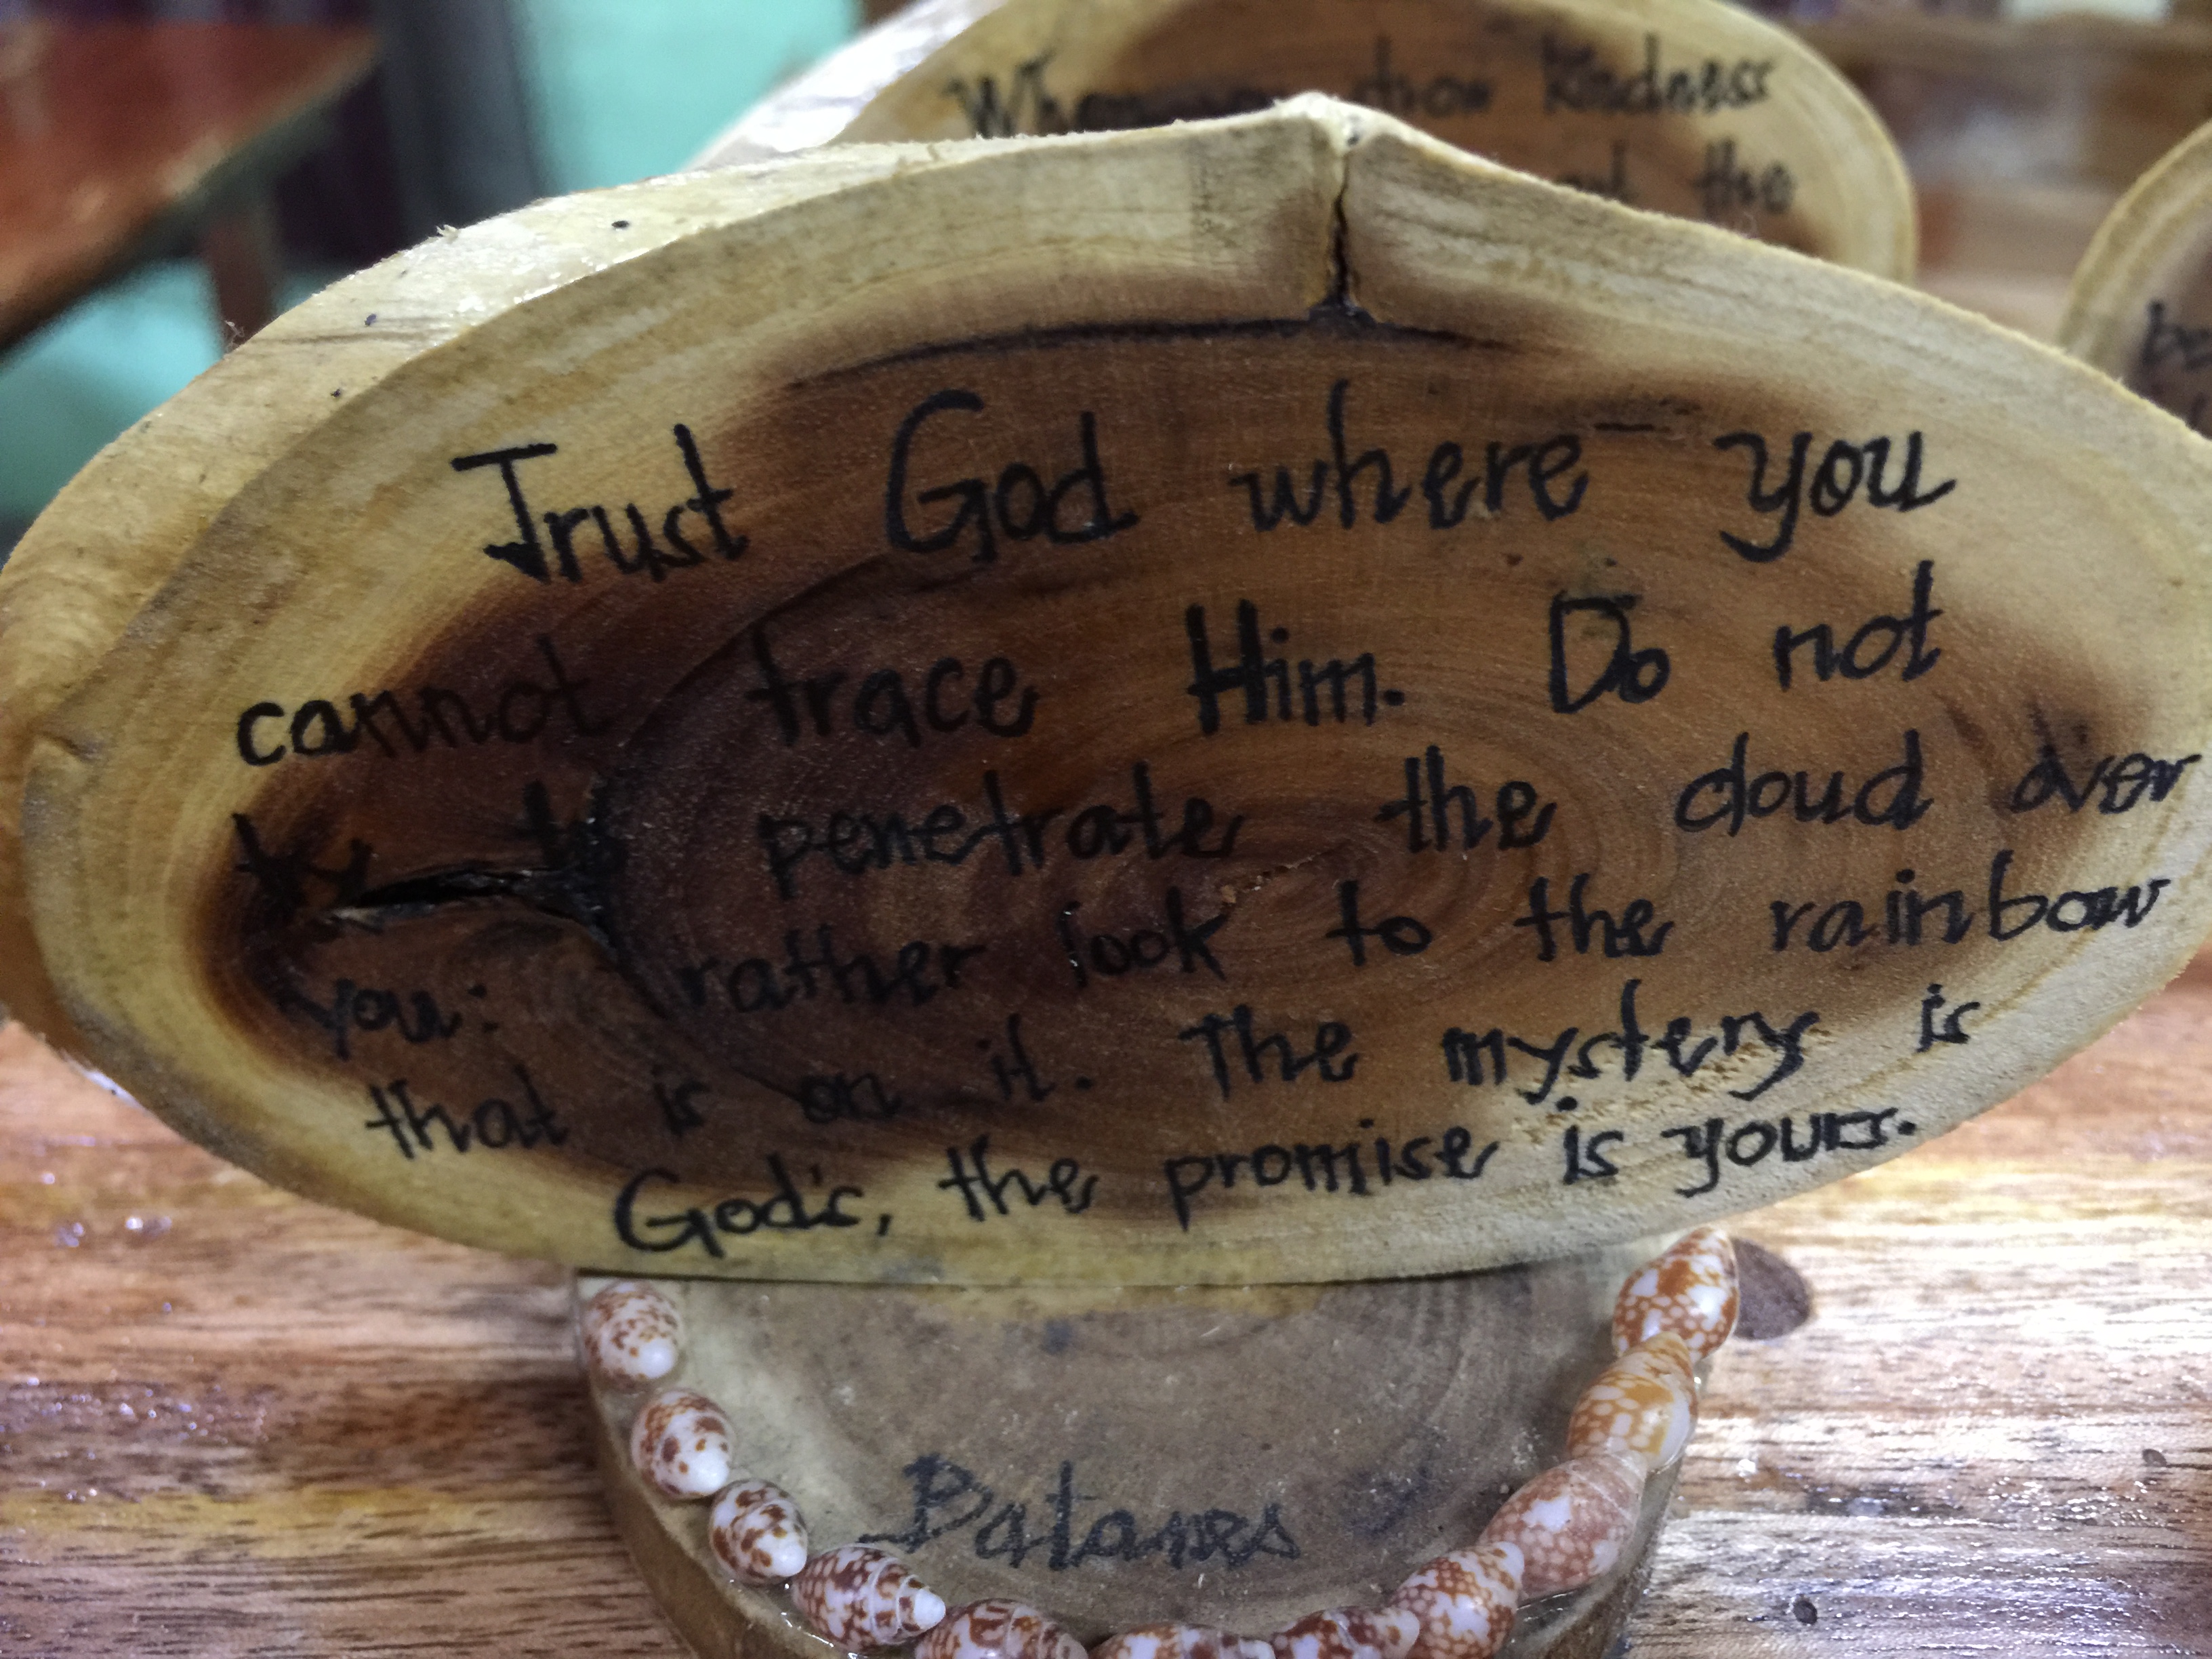 show Kindness
the
Trust God where you
cannot trace Him. Do not
try to penetrate the cloud over
you: rather look to the rainbow
that is on it. The mystery is
God's, the promise is yours.
Batanes